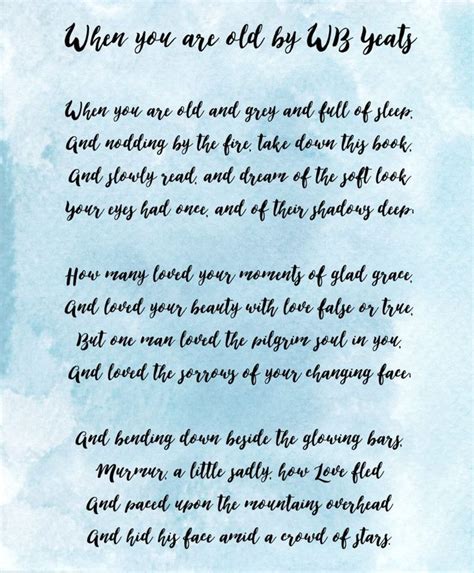 When you are old by WB Yeats
When you are old and grey and full of sleep,
And nodding by the fire, take down this book,
And slowly read, and dream of the soft look
Your eyes had once, and of their shadows deep;
How many loved your moments of glad grace,
And loved your beauty with love false or true,
But one man loved the pilgrim soul in you,
And loved the sorrows of your changing face;
And bending down beside the glowing bars,
Murmur, a little sadly, how Love fled
And paced upon the mountains overhead
And hid his face amid a crowd of stars.